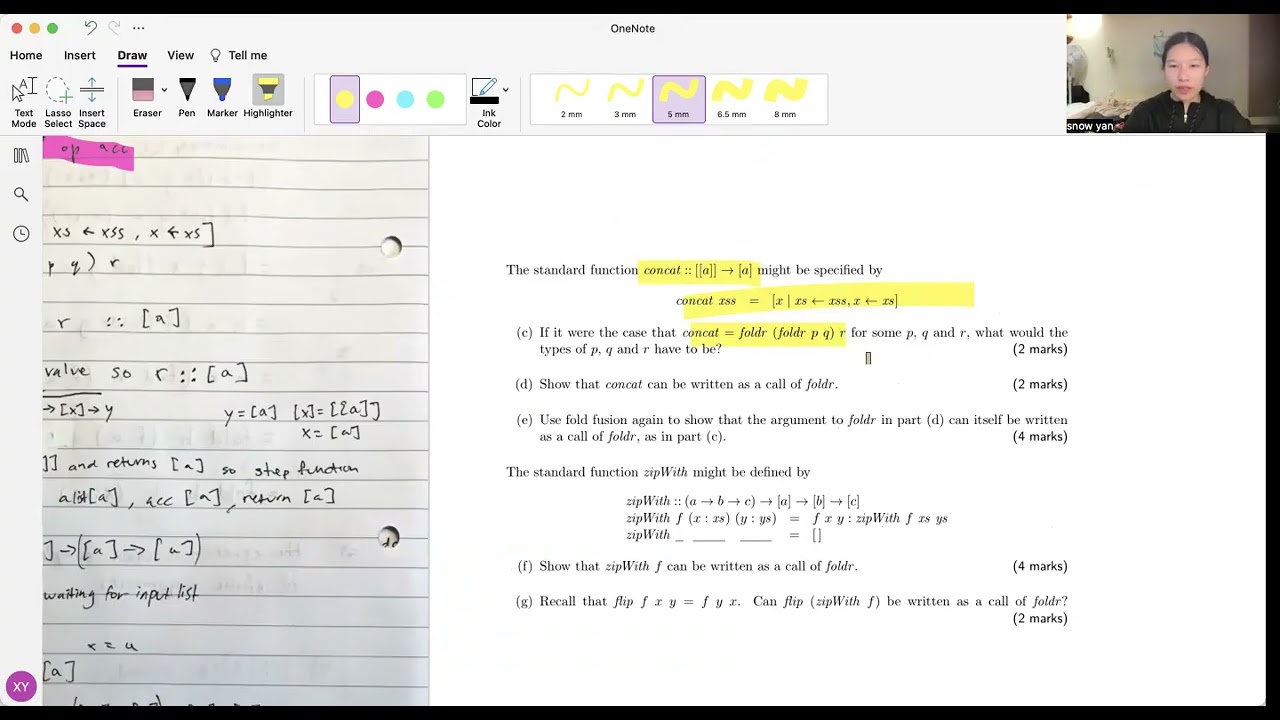 OneNote
Home Insert Draw View Tell me
Text Mode
Lasso Select
Insert Space
Eraser
Pen
Marker
Highlighter
Ink Color
2 mm
3 mm
5 mm
6.5 mm
8 mm
snow yan
op acc
xs ← xss, x ← xs]
p q) r
r :: [a]
value so r :: [a]
→[x]→y y=[a] [x]=[[a]]
x=[a]
]] and returns [a] so step function
a list[a], acc [a], return [a]
]→([a]→[a])
waiting for input list
x = a
[a]
XY
The standard function concat :: [[a]] → [a] might be specified by
concat xss = [x | xs ← xss, x ← xs]
(c) If it were the case that concat = foldr (foldr p q) r for some p, q and r, what would the
types of p, q and r have to be? (2 marks)
(d) Show that concat can be written as a call of foldr. (2 marks)
(e) Use fold fusion again to show that the argument to foldr in part (d) can itself be written
as a call of foldr, as in part (c). (4 marks)
The standard function zipWith might be defined by
zipWith :: (a → b → c) → [a] → [b] → [c]
zipWith f (x : xs) (y : ys) = f x y : zipWith f xs ys
zipWith _ __ __ = [ ]
(f) Show that zipWith f can be written as a call of foldr. (4 marks)
(g) Recall that flip f x y = f y x. Can flip (zipWith f) be written as a call of foldr?
(2 marks)